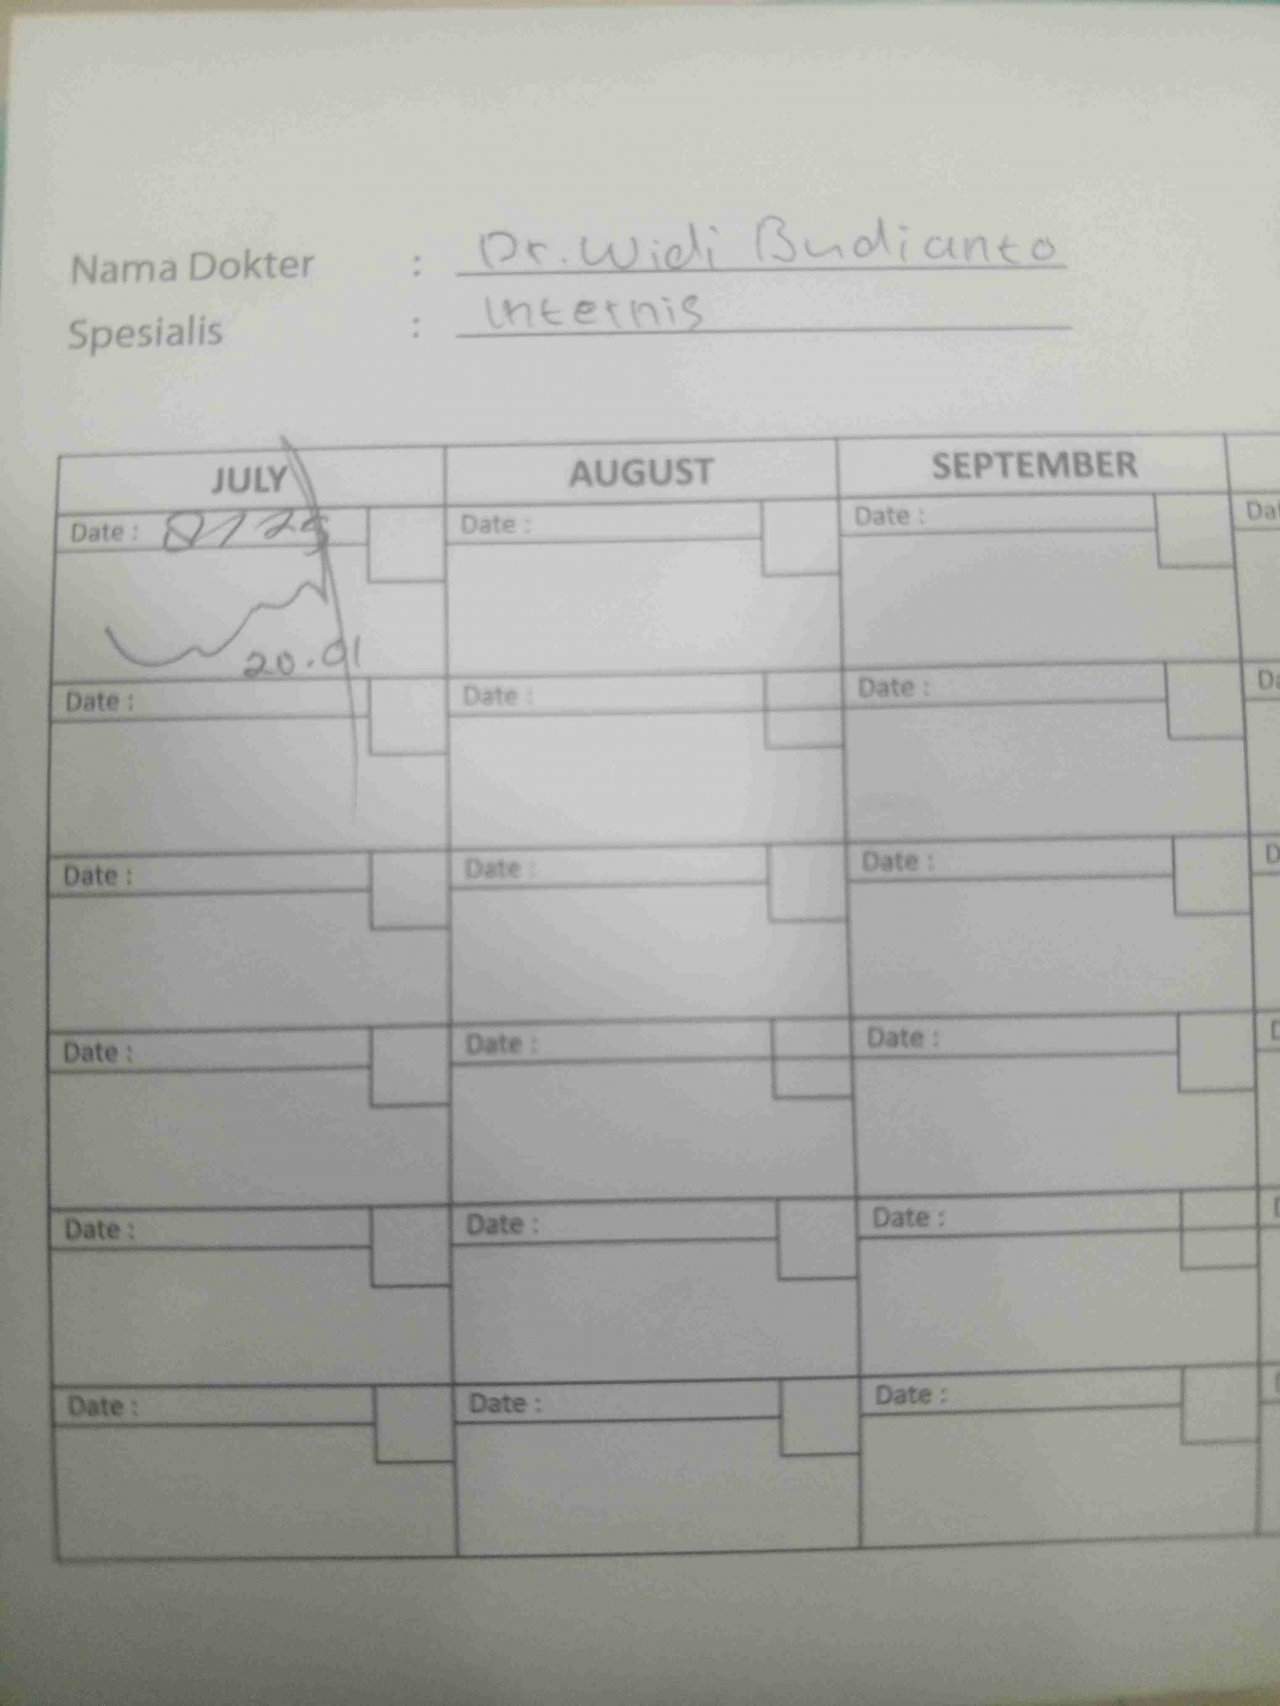 Nama Dokter : Dr. Widi Budianto
Spesialis : Internis
JULY AUGUST SEPTEMBER
Date : Date : Date :
20.01
Date : Date : Date :
Date : Date : Date :
Date : Date : Date :
Date : Date : Date :
Date : Date : Date :